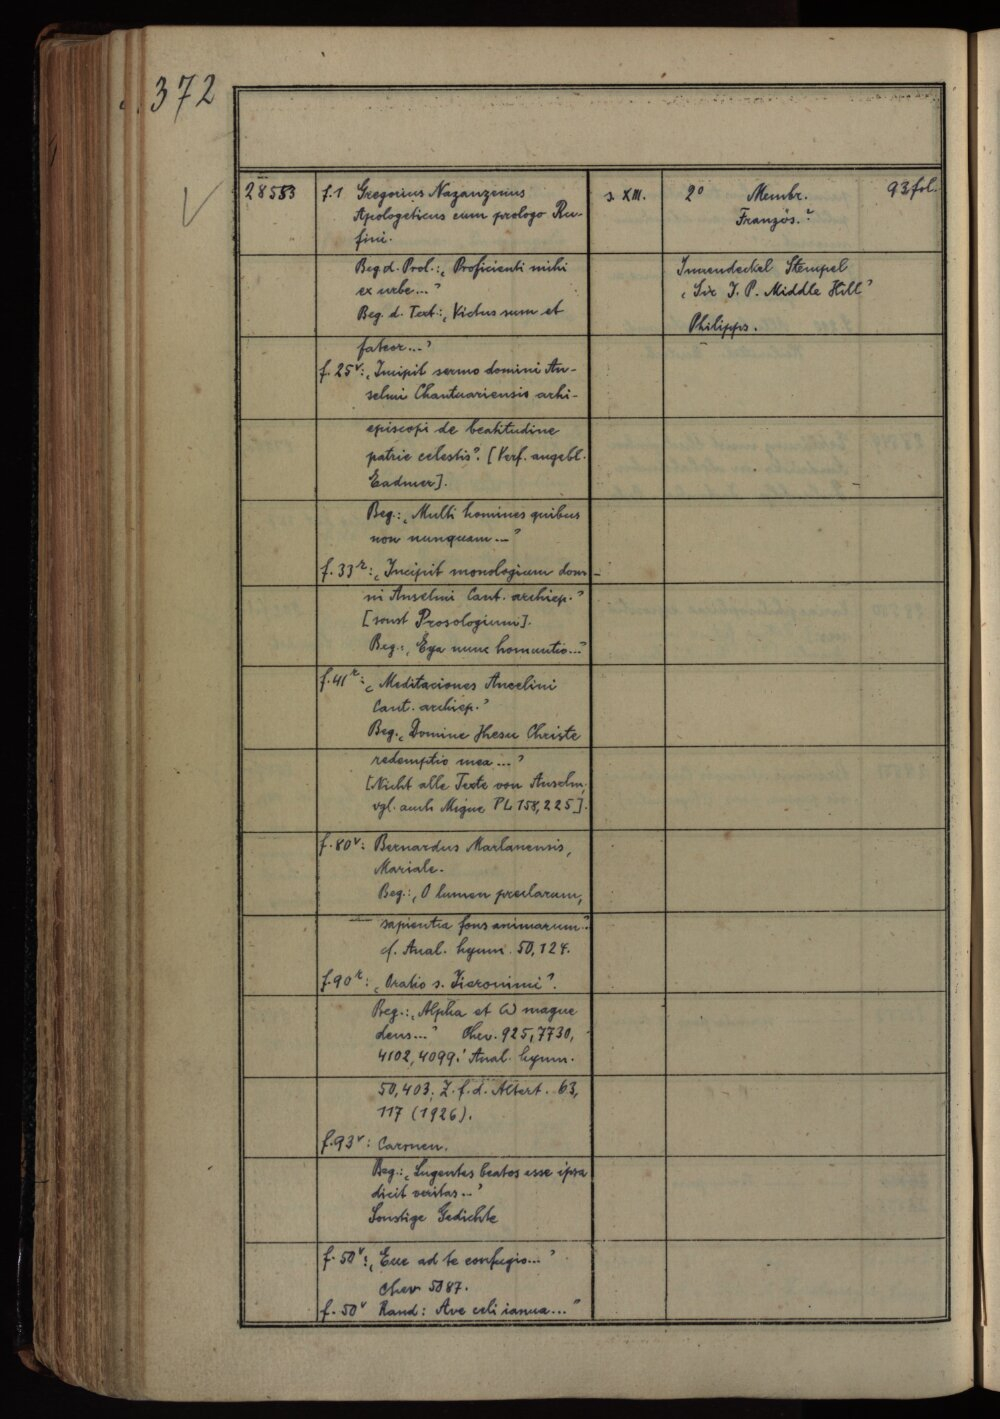 372
28583 f.1 Gregorius Nazanzenus s. XIII. 2° Membr. 93 fol.
Apologeticus cum prologo Ru- Französ.?
fini.
Beg. d. Prol.: „Proficienti mihi Innendeckel Stempel
ex urbe..." „Sir T. P. Middle Hill"
Beg. d. Text: „Victus sum et Philipps.
fateor..."
f. 25v: „Incipit sermo domini An-
selmi Chantuariensis archi-
episcopi de beatitudine
patrie celestis". [Verf. angebl.
Eadmer].
Beg.: „Multi homines quibus
non nunquam..."
f. 33r: „Incipit monologium domi-
ni Anselmi Cant. archiep."
[sonst Prosologium].
Beg.: „Eya nunc homuntio..."
f. 41r: „Meditaciones Ancelini
Cant. archiep."
Beg. „Domine Jhesu Christe
redemptio mea..."
[Nicht alle Texte von Anselm,
vgl. auch Migne PL 158, 225].
f. 80v: Bernardus Marlanensis,
Mariale.
Beg.: „O lumen preclarum,
sapientia fons animarum"
cf. Anal. hymn. 50, 124.
f. 90r: „Oratio s. Jieronimi".
Beg.: „Alpha et Ω magne
deus..." Chev. 925, 7730,
4102, 4099; Anal. hymn.
50, 403; Z. f. d. Altert. 63,
117 (1926).
f. 93v: Carmen.
Beg.: „Lugentes beatos esse ipsa
dicit veritas..."
Sonstige Gedichte
f. 50v: „Ecce ad te confugio..."
Chev 5087.
f. 50v Rand: Ave celi ianua..."